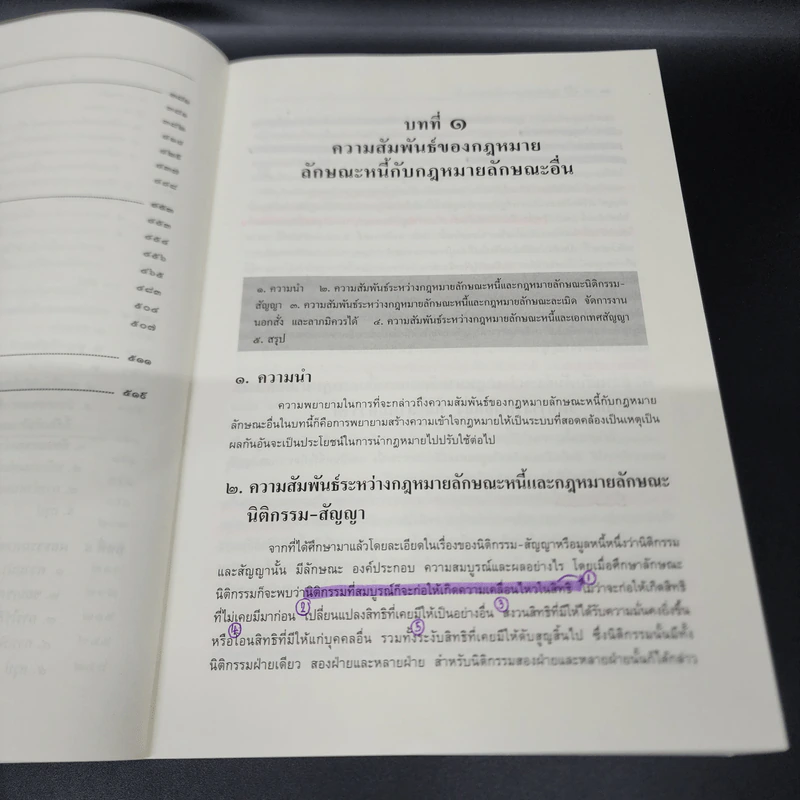 ๓๙๑
๓๙๒
๔๑๘
๔๒๕
๔๓๘
๔๔๘
๔๕๓
๔๕๓
๔๕๔
๔๕๖
๔๖๕
๔๘๓
๕๐๔
๕๐๗
๕๑๑
๕๑๕
บทที่ ๑
ความสัมพันธ์ของกฎหมาย
ลักษณะหนี้กับกฎหมายลักษณะอื่น
๑. ความนำ ๒. ความสัมพันธ์ระหว่างกฎหมายลักษณะหนี้และกฎหมายลักษณะนิติกรรม-
สัญญา ๓. ความสัมพันธ์ระหว่างกฎหมายลักษณะหนี้และกฎหมายลักษณะละเมิด จัดการงาน
นอกสั่ง และลาภมิควรได้ ๔. ความสัมพันธ์ระหว่างกฎหมายลักษณะหนี้และเอกเทศสัญญา
๕. สรุป
๑. ความนำ
ความพยายามในการที่จะกล่าวถึงความสัมพันธ์ของกฎหมายลักษณะหนี้กับกฎหมาย
ลักษณะอื่นในบทนี้ก็คือการพยายามสร้างความเข้าใจกฎหมายให้เป็นระบบที่สอดคล้องเป็นเหตุเป็น
ผลกันอันจะเป็นประโยชน์ในการนำกฎหมายไปปรับใช้ต่อไป
๒. ความสัมพันธ์ระหว่างกฎหมายลักษณะหนี้และกฎหมายลักษณะ
นิติกรรม-สัญญา
จากที่ได้ศึกษามาแล้วโดยละเอียดในเรื่องของนิติกรรม-สัญญาหรือมูลหนี้หนึ่งว่านิติกรรม
และสัญญานั้น มีลักษณะ องค์ประกอบ ความสมบูรณ์และผลอย่างไร โดยเมื่อศึกษาลักษณะ
นิติกรรมก็จะพบว่านิติกรรมที่สมบูรณ์ก็จะก่อให้เกิดความเคลื่อนไหวในสิทธิ ไม่ว่าจะก่อให้เกิดสิทธิ ①
ที่ไม่เคยมีมาก่อน ② เปลี่ยนแปลงสิทธิที่เคยมีให้เป็นอย่างอื่น ③ สงวนสิทธิที่มีให้ได้รับความมั่นคงยิ่งขึ้น
④ หรือโอนสิทธิที่มีให้แก่บุคคลอื่น รวมทั้ง ⑤ ระงับสิทธิที่เคยมีให้ดับสูญสิ้นไป ซึ่งนิติกรรมนั้นมีทั้ง
นิติกรรมฝ่ายเดียว สองฝ่ายและหลายฝ่าย สำหรับนิติกรรมสองฝ่ายและหลายฝ่ายนั้นก็ได้กล่าว